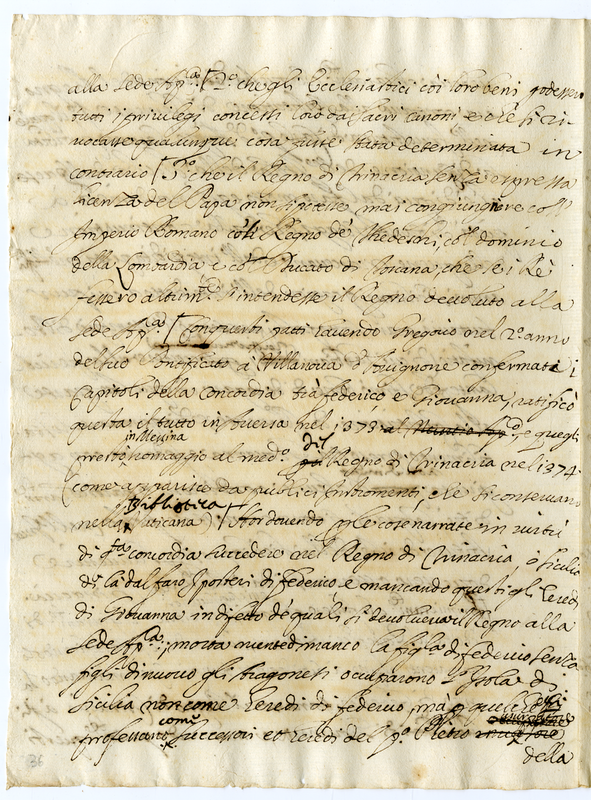 alla Sede Ap.ca [2.o che gli Ecclesiastici coi loro beni godessero
tutti i privilegi concessi loro dai Sacri canoni e che si ri-
vocasse qualunque cosa fusse stata determinata in
contrario [3.o che il Regno di Trinacria senza expressa
licenza del Papa non si potesse mai congiungere coll'
Imperio Romano col Regno de Thedeschi, col dominio
della Lombardia e col Ducato di Toscana che se i Rè
fessero altrim.te s'intendesse il Regno devoluto alla
Sede Ap.ca [Con questi patti havendo Gregorio nel 2.o anno
del suo Pontificato à Villanova d'Avignone confermati i
Capitoli della Concordia trà federico, e Giovanna, ratificò
questa il tutto in Aversa nel 1373 al Nuntio Ap.co, e quegli
prestò in Messina homaggio al med.o del Regno di Trinacria nel 1374
(come apparisce da publici Instromenti, che si conservano
nella Biblioteca Vaticana) [Hor dovendo p le cose narrate in virtù
di q.ta concordia succedere nel Regno di Trinacria, ò Sicilia
di là dal faro i posteri di federico, e mancando questi gli heredi
di Giovanna in difetto de quali si devolveva il Regno alla
Sede Ap.ca; morta nientedimanco la figl.a di federico senza
figli di nuovo gli Aragonesi occuparono l'Isola di
Sicilia non come heredi di federico mà p quel che essi
professarono come successori et heredi del p.o Pietro
della
36